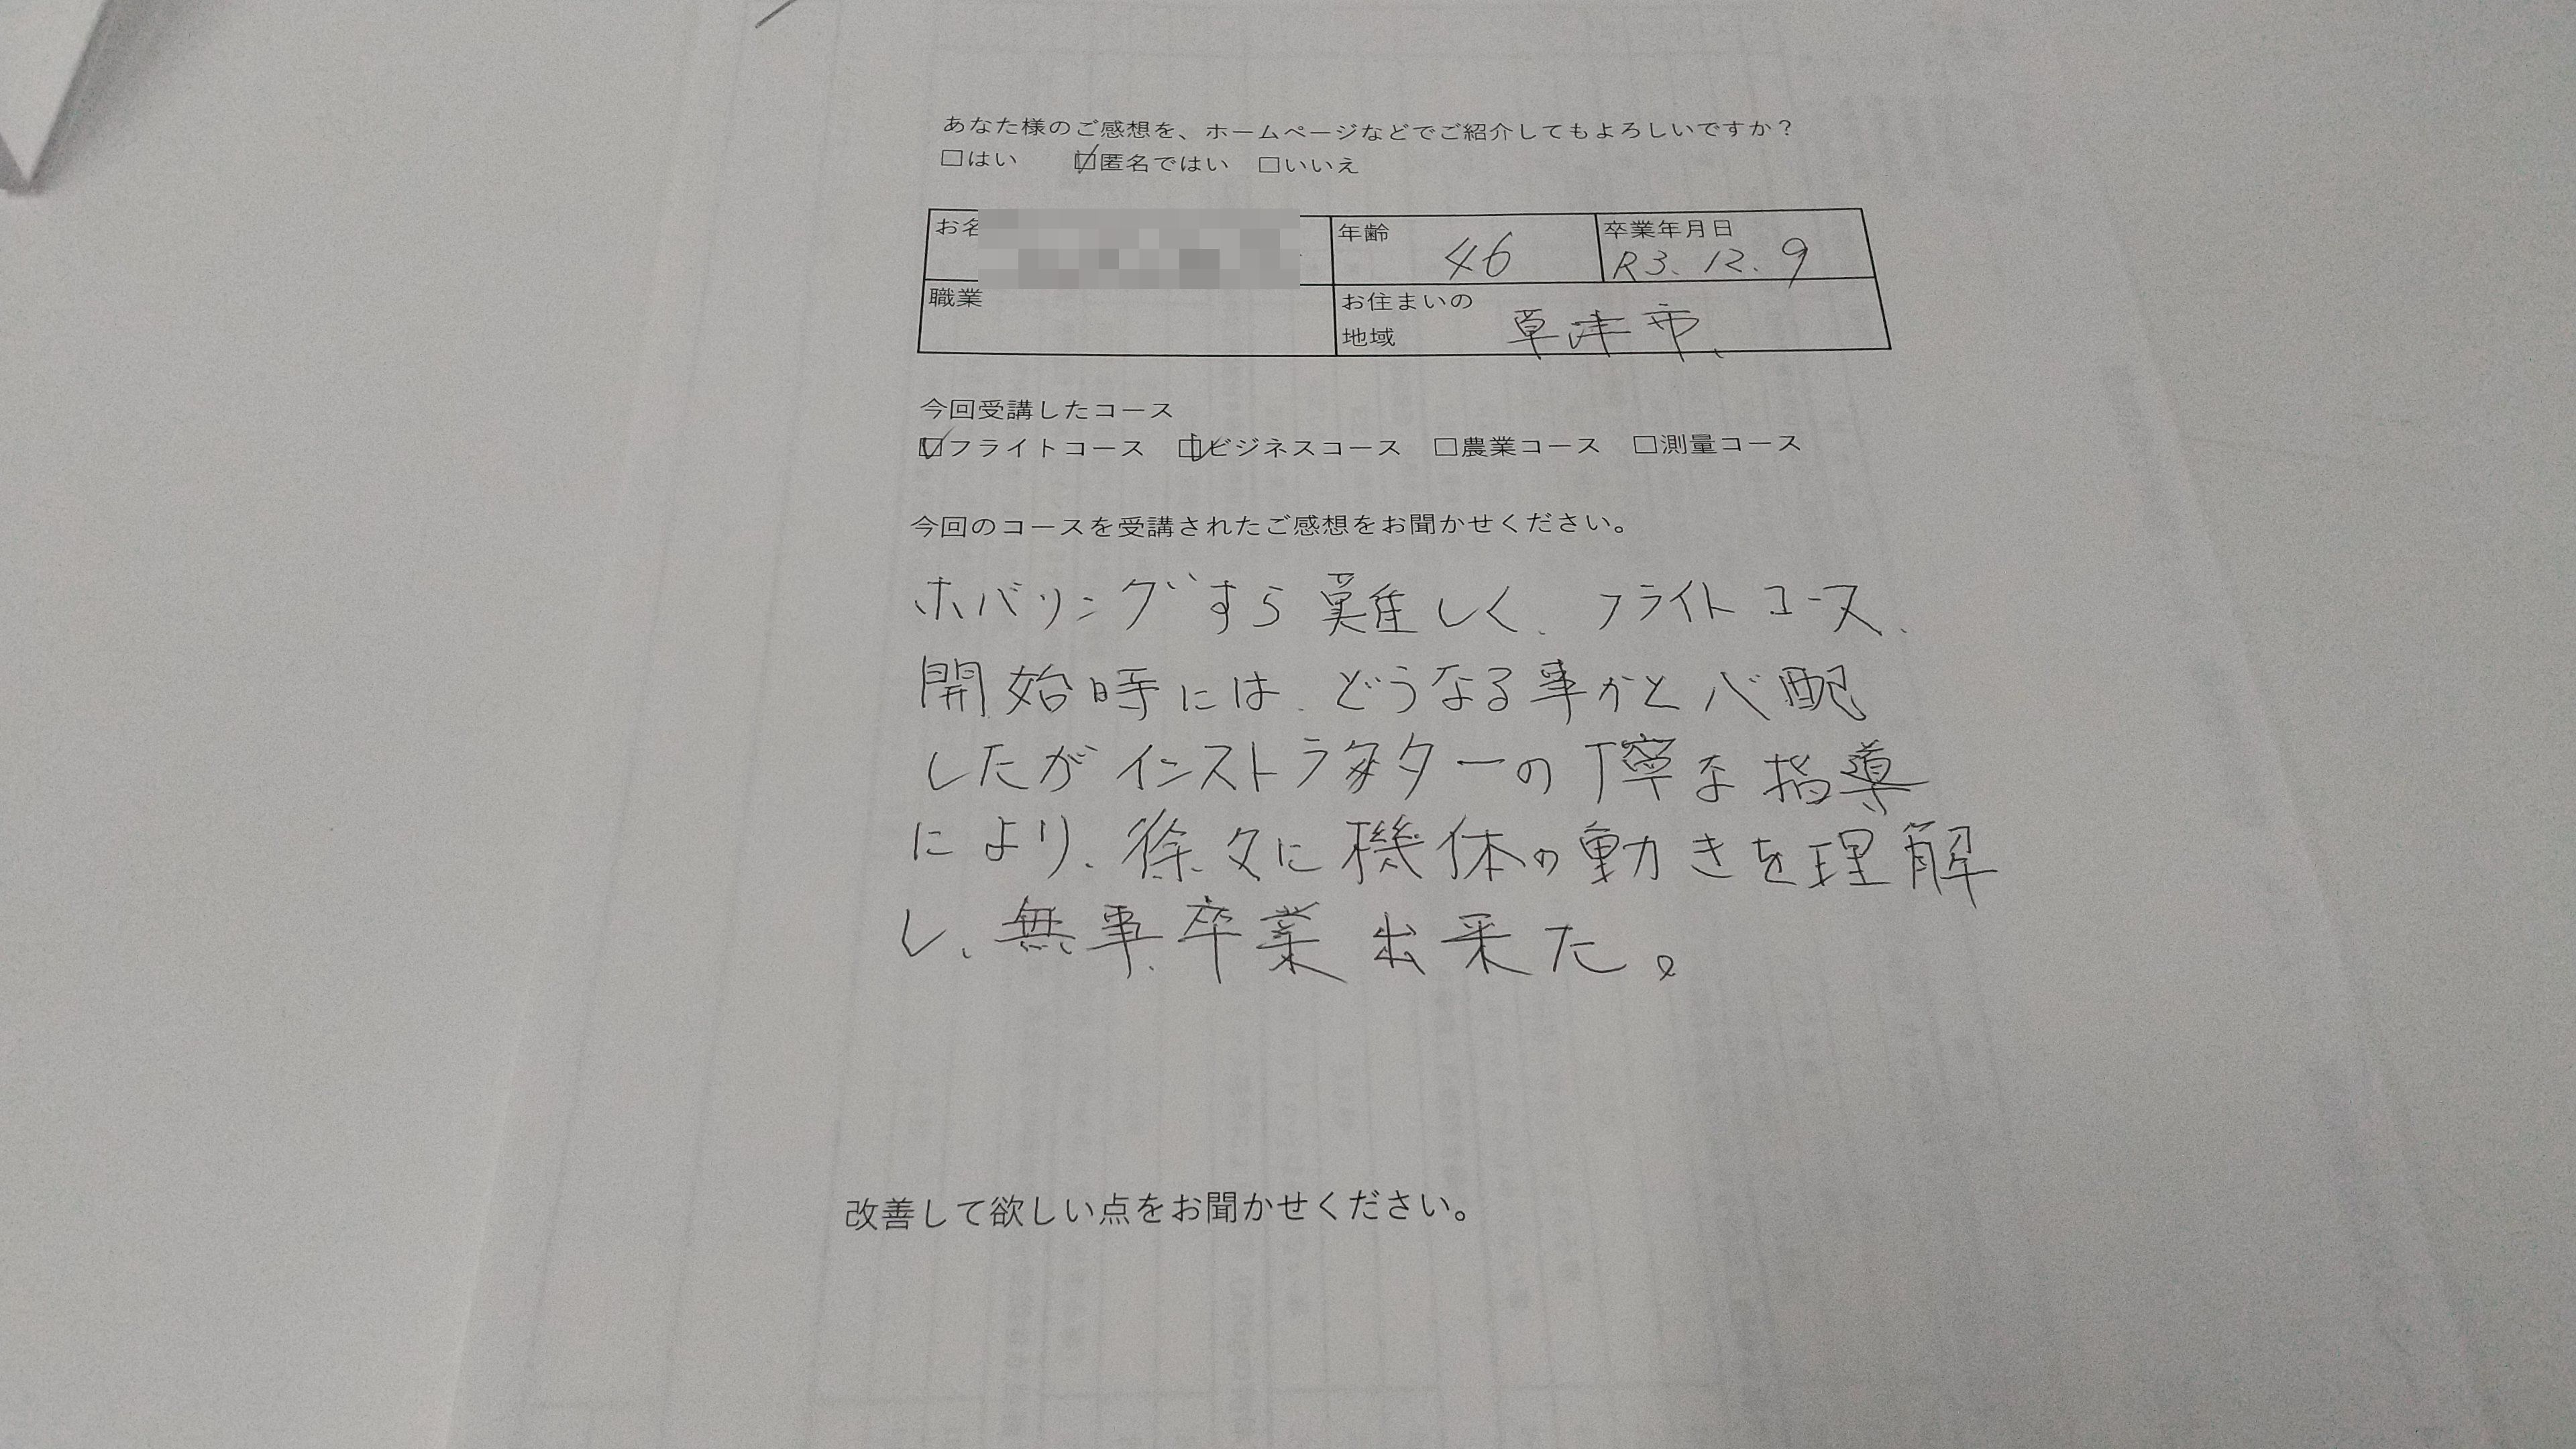 あなた様のご感想を、ホームページなどでご紹介してもよろしいですか？
□はい ☑匿名ではい □いいえ
お名
年齢 46
卒業年月日 R3.12.9
職業
お住まいの
地域 草津市、
今回受講したコース
☑フライトコース ☑ビジネスコース □農業コース □測量コース
今回のコースを受講されたご感想をお聞かせください。
ホバリングすら難しく、フライトコース、
開始時には、どうなる事かと心配
したがインストラクターの丁寧な指導
により、徐々に機体の動きを理解
し、無事卒業出来た。
改善して欲しい点をお聞かせください。